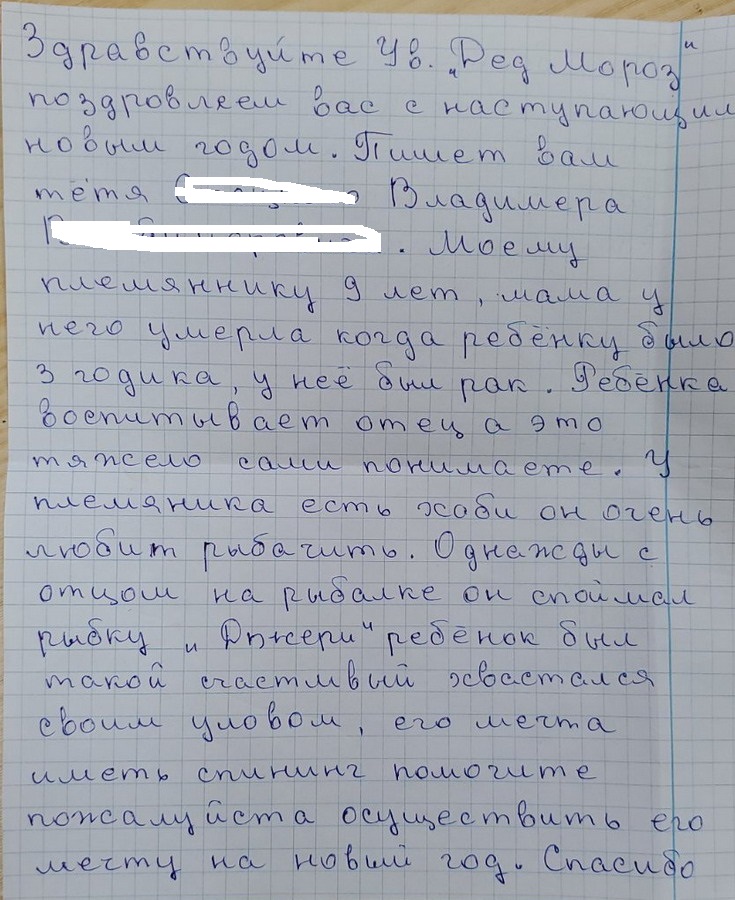 Здравствуйте Ув. "Дед Мороз"
поздровляем вас с наступающим
новым годом. Пишет вам
тётя Владимера
. Моему
племяннику 9 лет, мама у
него умерла когда ребёнку было
3 годика, у неё был рак. Ребёнка
воспитывает отец а это
тяжело сами понимаете. У
племяника есть хоби он очень
любит рыбачить. Однажды с
отцом на рыбалке он споймал
рыбку "Джери" ребёнок был
такой счастливый хвастался
своим уловом, его мечта
иметь спининг помогите
пожалуйста осуществить его
мечту на новый год. Спасибо